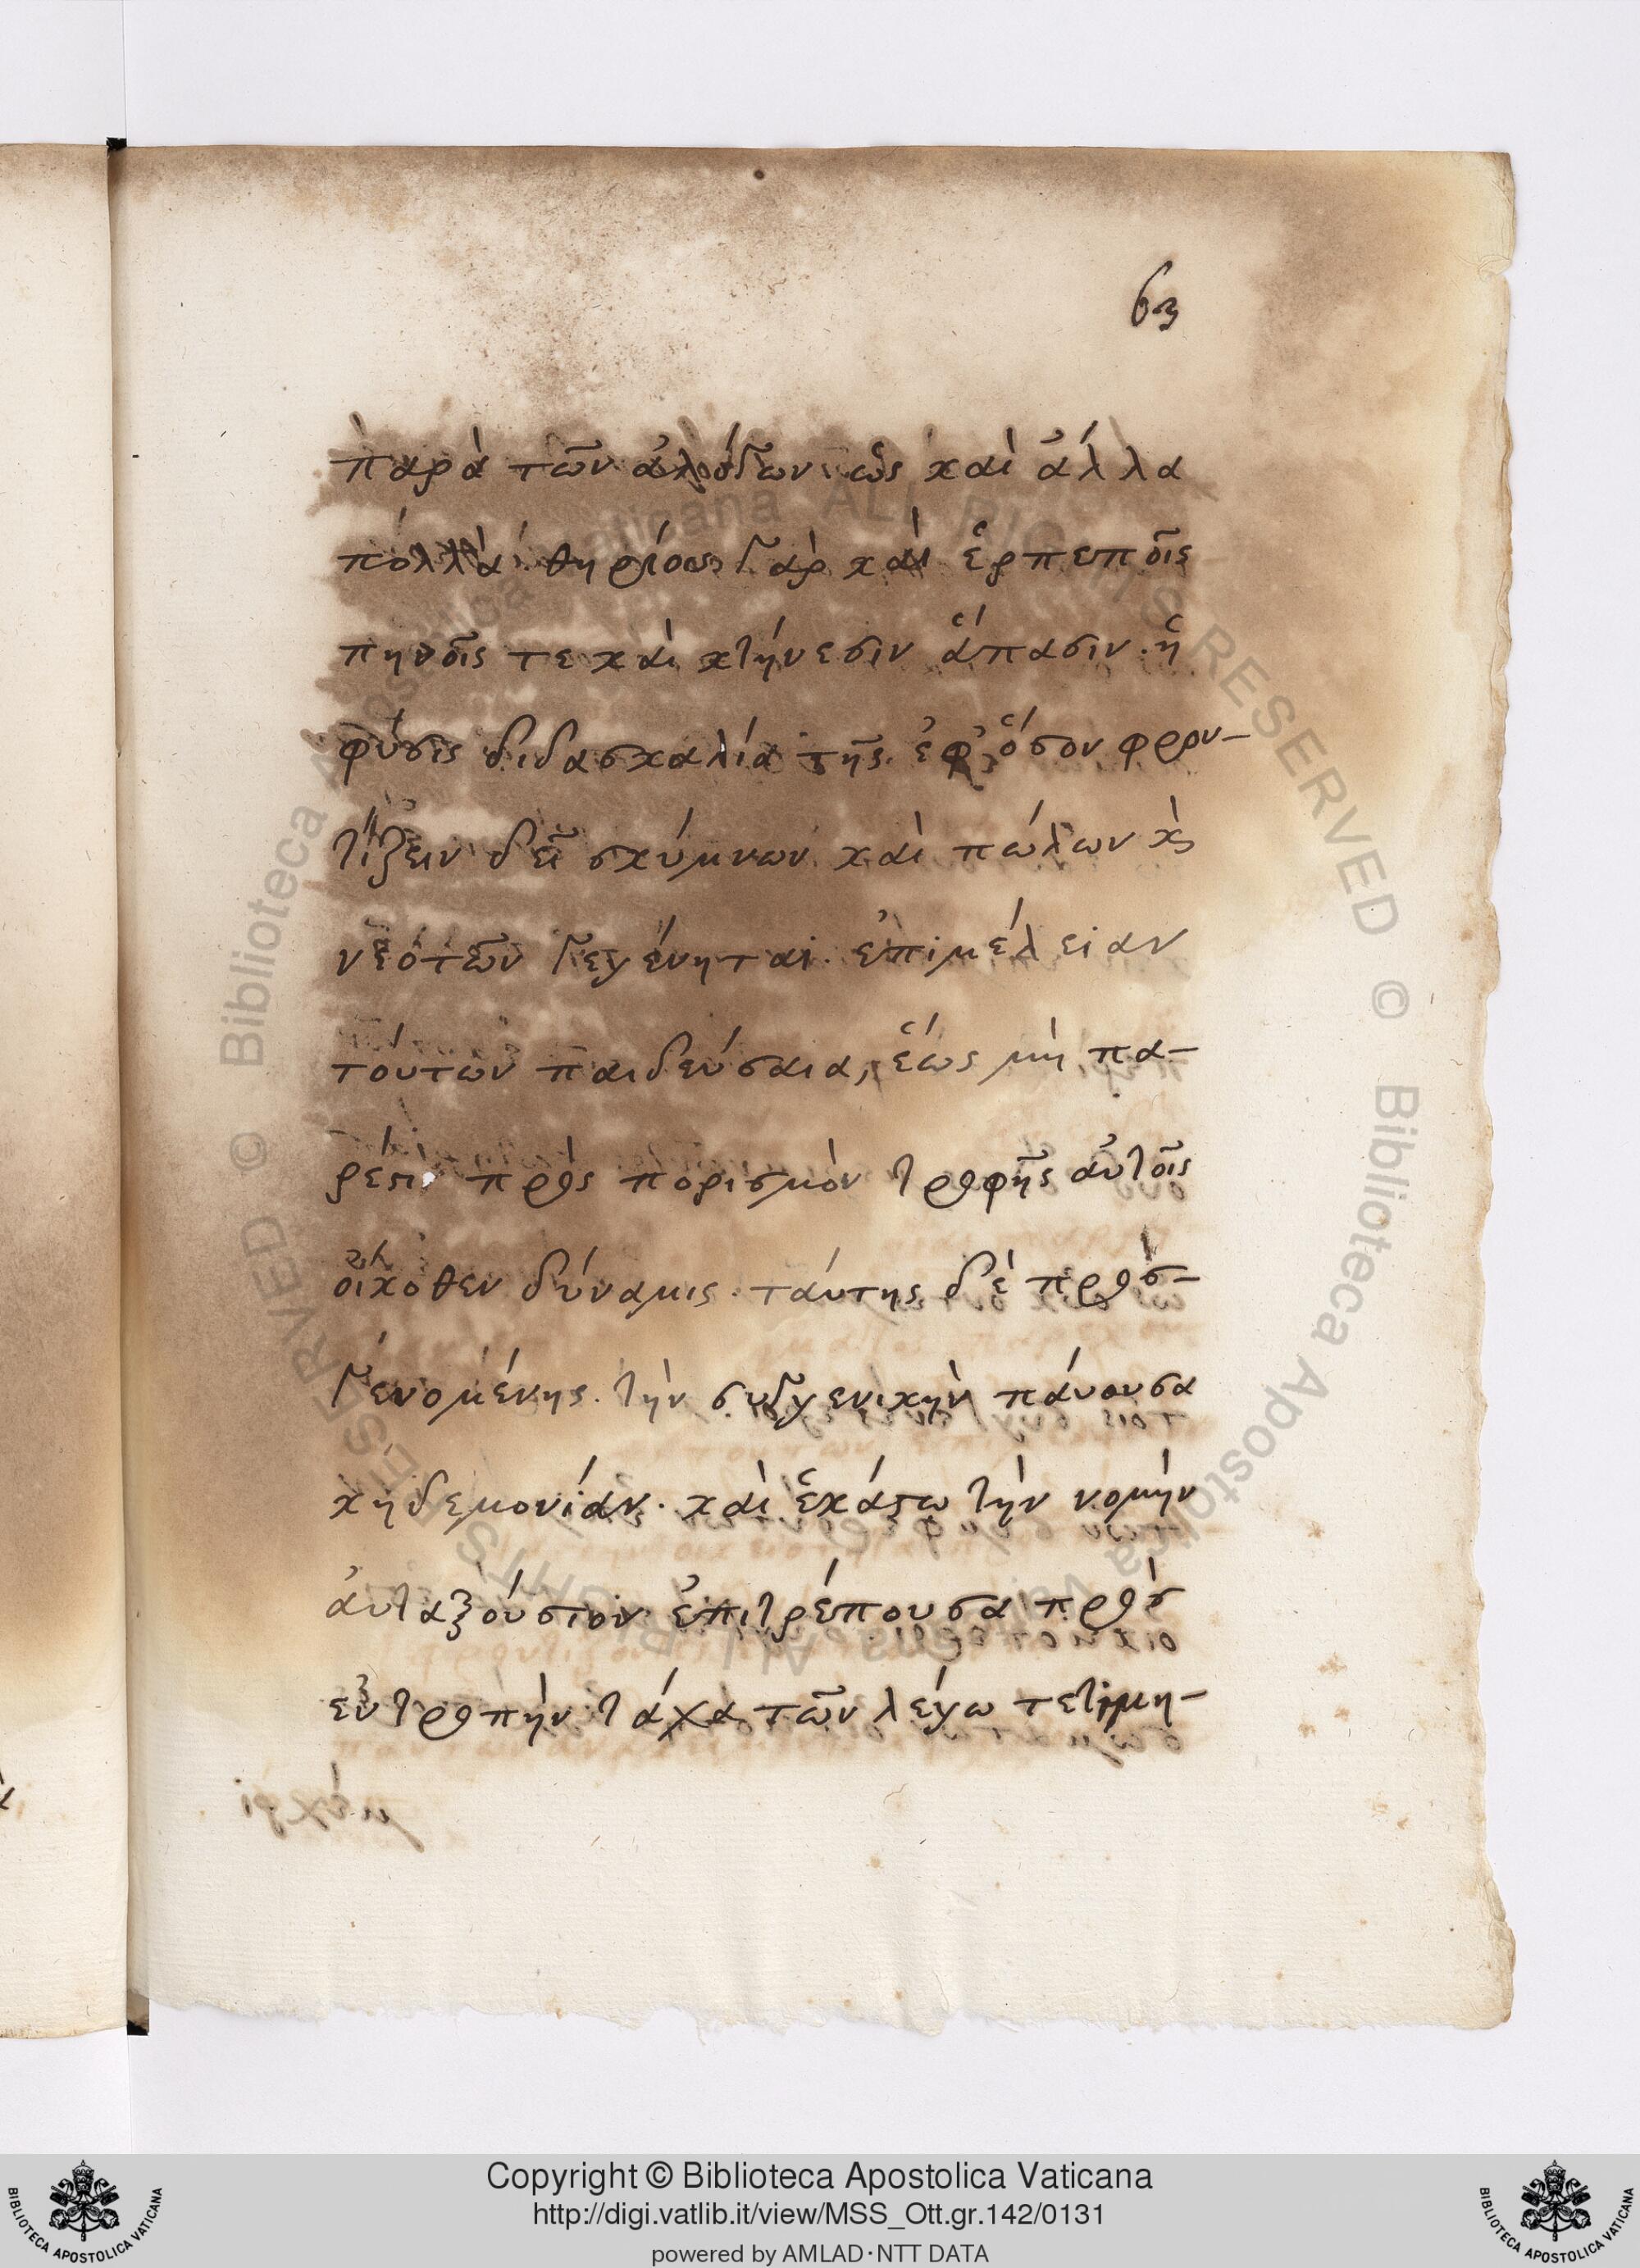 63
παρὰ τῶν ἀλόγων ὡς καὶ ἄλλα
πόλλὰ· θηρίοις γὰρ καὶ ἑρπετοῖς
πηνοῖς τε καὶ κτήνεσιν ἅπασιν· ἡ
φύσις διδασκαλία τῆς ἐφ' ὅσον φρον-
τίζειν δεῖ σκύμνων καὶ πώλων κ̀ς
νεοτῶν γεγένηται· ἐπιμέλειαν
τούτων παιδεύσασα, ἕως μὴ πα-
ρέστι πρὸς πορισμὸν τροφῆς αὐτοῖς
οἴκοθεν δύναμις· τάυτης δὲ προσ-
γενομένης· τὴν συγγενικὴν πάυουσα
κηδεμονίαν· καὶ ἑκάστω τὴν νομὴν
ἀυταξούσιον ἐπιτρέπουσα πρὸς
ἐντροπὴν τάχα τῶν λέγω τετιμη-
μέχρι
Copyright © Biblioteca Apostolica Vaticana
http://digi.vatlib.it/view/MSS_Ott.gr.142/0131
powered by AMLAD·NTT DATA
BIBLIOTECA APOSTOLICA VATICANA
BIBLIOTECA APOSTOLICA VATICANA